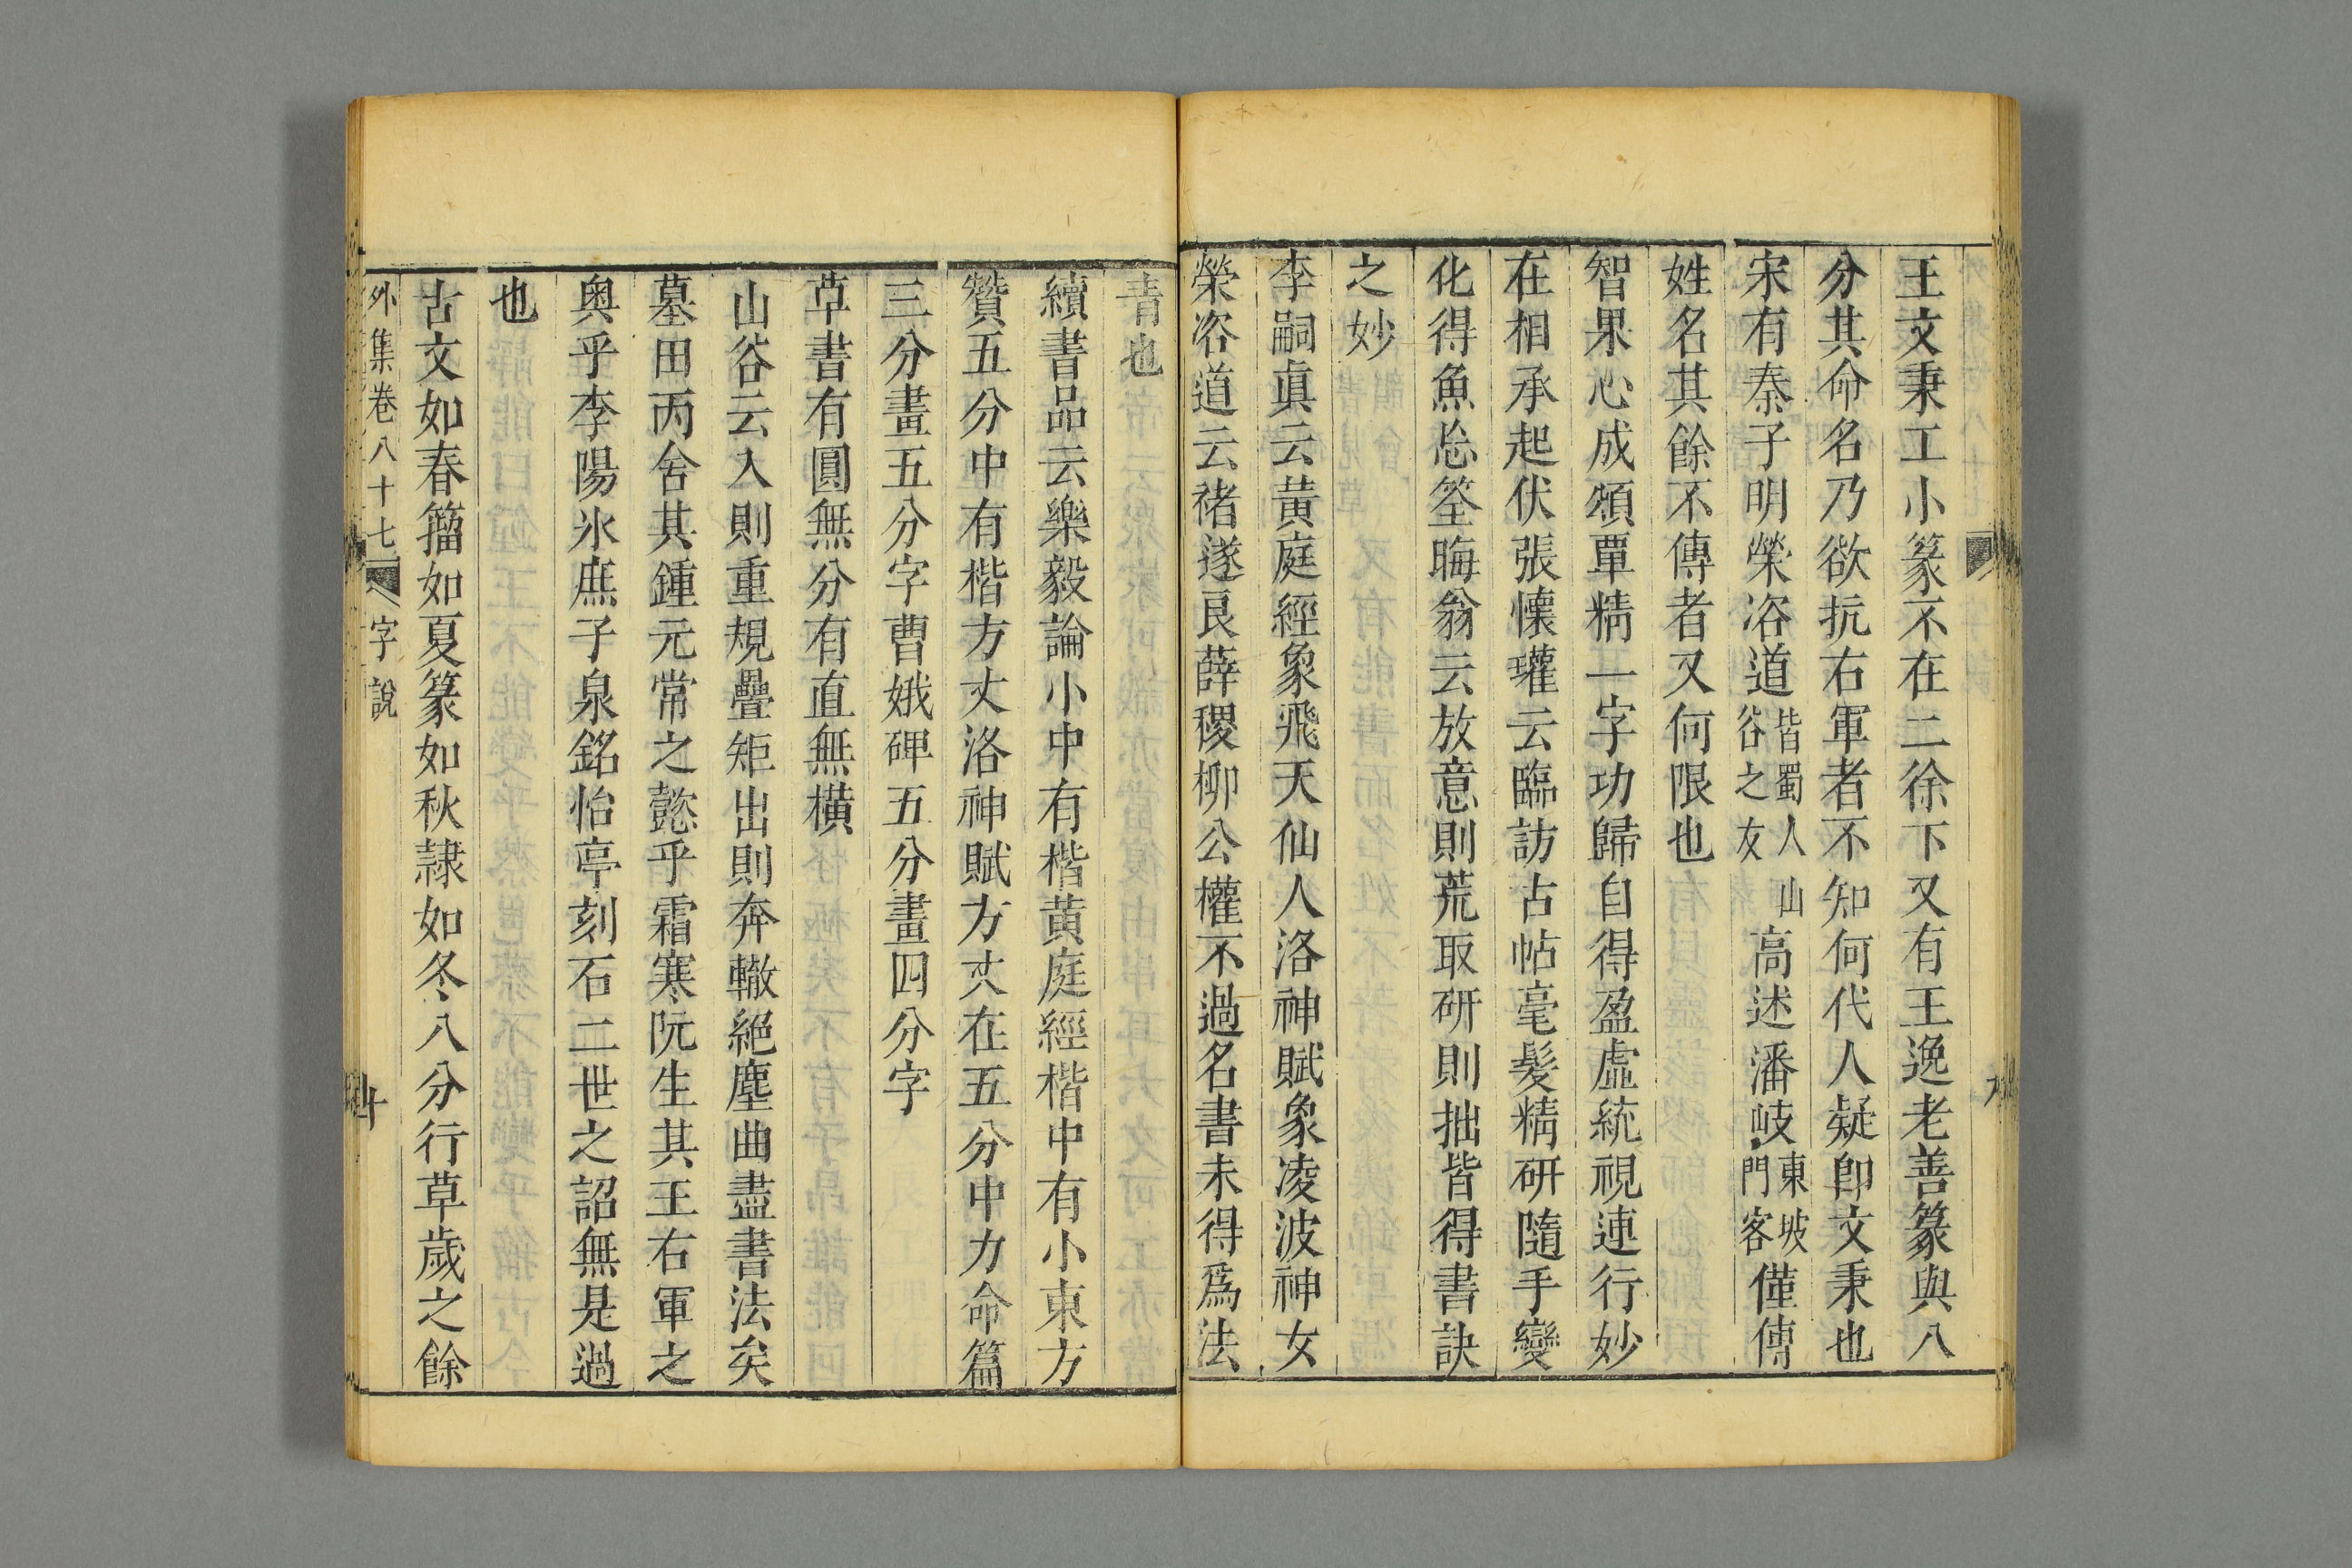 王文秉工小篆不在二徐下又有王逸老善篆與八
分其命名乃欲抗右軍者不知何代人疑卽文秉也
宋有秦子明榮咨道皆蜀人山谷之友高述潘岐東坡門客僅傳
姓名其餘不傳者又何限也
智果心成頌覃精一字功歸自得盈虛統視連行妙
在相承起伏張懷瓘云臨訪古帖毫髮精研隨手變
化得魚忘筌晦翁云放意則荒取研則拙皆得書訣
之妙
李嗣眞云黃庭經象飛天仙人洛神賦象凌波神女
榮咨道云禇遂良薛稷柳公權不過名書未得爲法
書也
續書品云樂毅論小中有楷黃庭經楷中有小東方
贊五分中有楷方丈洛神賦方丈在五分中力命篇
三分畫五分字曹娥碑五分畫四分字
草書有圓無分有直無橫
山谷云入則重規疊矩出則奔轍絕塵曲盡書法矣
墓田丙舍其鍾元常之懿乎霜寒阮生其王右軍之
奥乎李陽氷庶子泉銘怡亭刻石二世之詔無是過
也
古文如春籀如夏篆如秋隷如冬八分行草歲之餘
外集卷八十七 字說 十